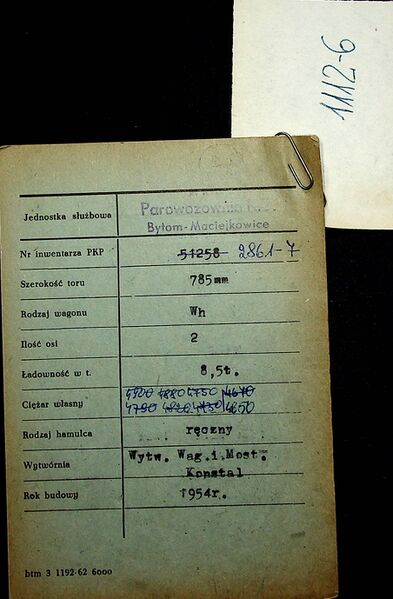 1112-6
Jednostka służbowa Parowozownia
Bytom-Maciejkowice
Nr inwentarza PKP 51258 2861-7
Szerokość toru 785mm
Rodzaj wagonu Wh
Ilość osi 2
Ładowność w t. 8,5t.
Ciężar własny 4900 4880 4750 4670
4790 4820 4650
Rodzaj hamulca ręczny
Wytwórnia Wytw. Wag.i.Most.
Konstal
Rok budowy 1954r.
btm 3 1192-62 6000